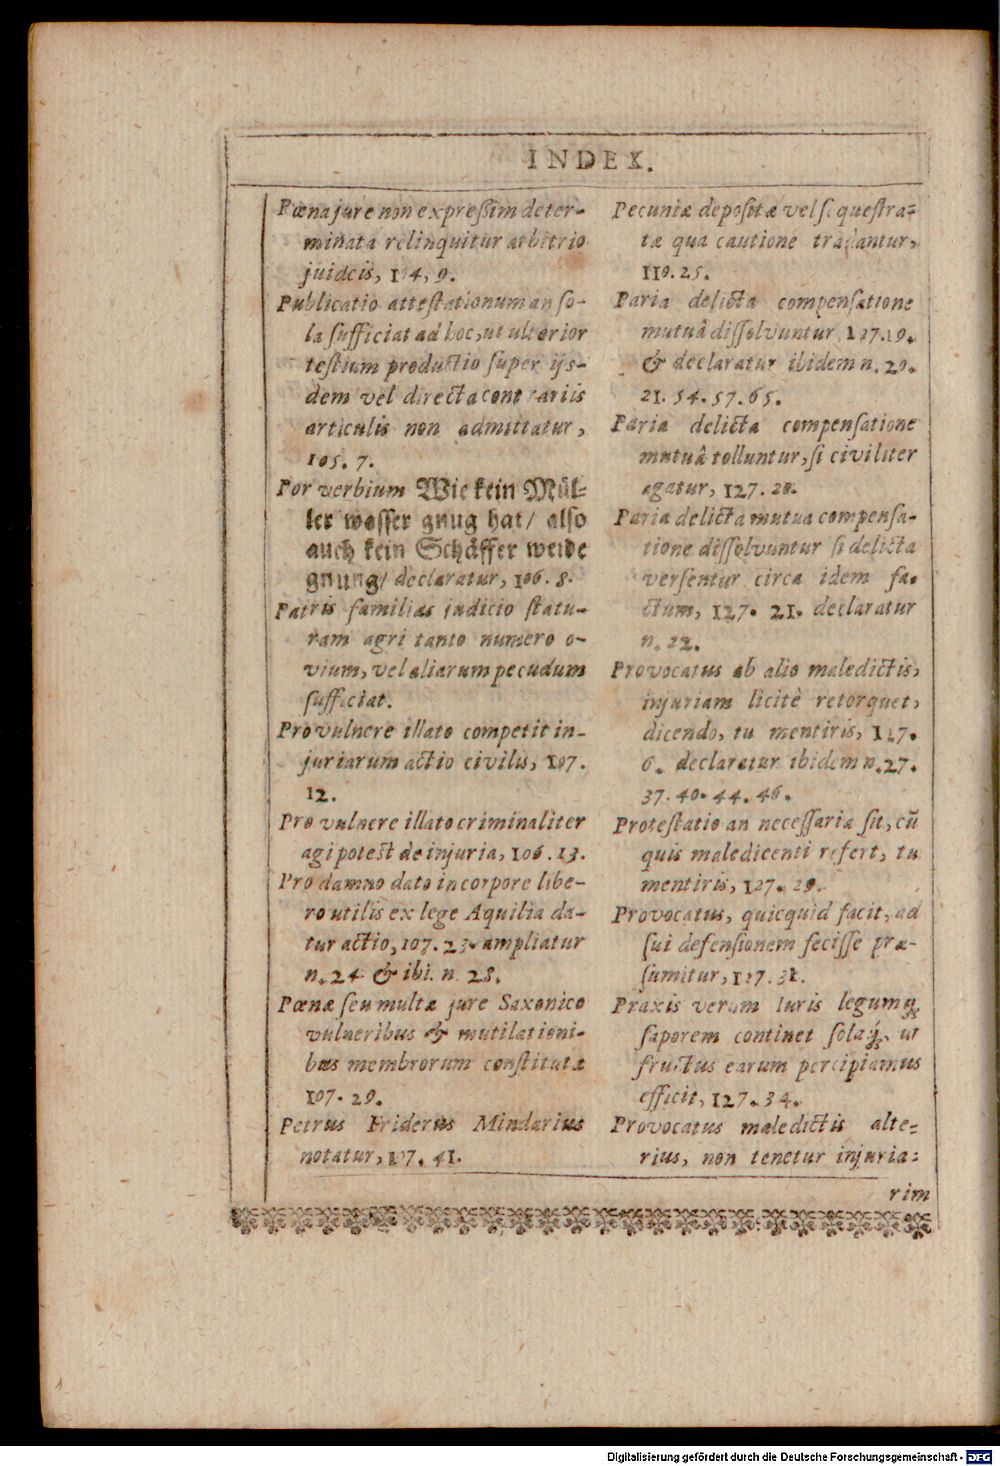 INDEX.
Pœna jure non expreßim deter-
minata relinquitur arbitrio
juidcis, 104, 9.
Publicatio attestationum an so-
la sufficiat ad hoc, ut ulterior
testium productio super ijs-
dem vel directa contrariis
articulis non admittatur,
105. 7.
Por verbium Wie kein Mül-
ler wasser gnug hat/ also
auch kein Schäffer weide
gnung/ declaratur, 106. 8.
Patris familias judicio statu-
ram agri tanto numero o-
vium, vel aliarum pecudum
sufficiat.
Pro vulnere illato competit in-
juriarum actio civilis, 107.
12.
Pro vulnere illato criminaliter
agi potest de injuria, 106. 13.
Pro damno dato in corpore libe-
ro utilis ex lege Aquilia da-
tur actio, 107. 23. ampliatur
n. 24 & ibi. n. 28.
Pœnæ seu multæ jure Saxonico
vulneribus & mutilationi-
bus membrorum constitutæ
107. 29.
Petrus Friderus Mindarius
notatur, 107. 41.
Pecuniæ depositæ vel sequestra-
tæ qua cautione tradantur,
110. 25.
Paria delicta compensatione
mutuâ dissolvuntur, 127. 19.
& declaratur ibidem n. 20.
21. 54. 57. 65.
Paria delicta compensatione
mutuâ tolluntur, si civiliter
agatur, 127. 20.
Paria delicta mutua compensa-
tione dissolvuntur si delicta
versentur circa idem fa-
ctum, 127. 21. declaratur
n. 22.
Provocatus ab alio maledictis,
injuriam licitè retorquet,
dicendo, tu mentiris, 127.
6. declaratur ibidem n. 27.
37. 40. 44. 46.
Protestatio an necessaria sit, cũ
quis maledicenti refert, tu
mentiris, 127. 29.
Provocatus, quicquid facit, ad
sui defensionem fecisse præ-
sumitur, 127. 31.
Praxis verum Iuris legumq́;
saporem continet solaq́;, ut
fructus earum percipiamus
efficit, 127. 34.
Provocatus maledictis alte-
rius, non tenetur injuria-
rim
Digitalisierung gefördert durch die Deutsche Forschungsgemeinschaft - DFG